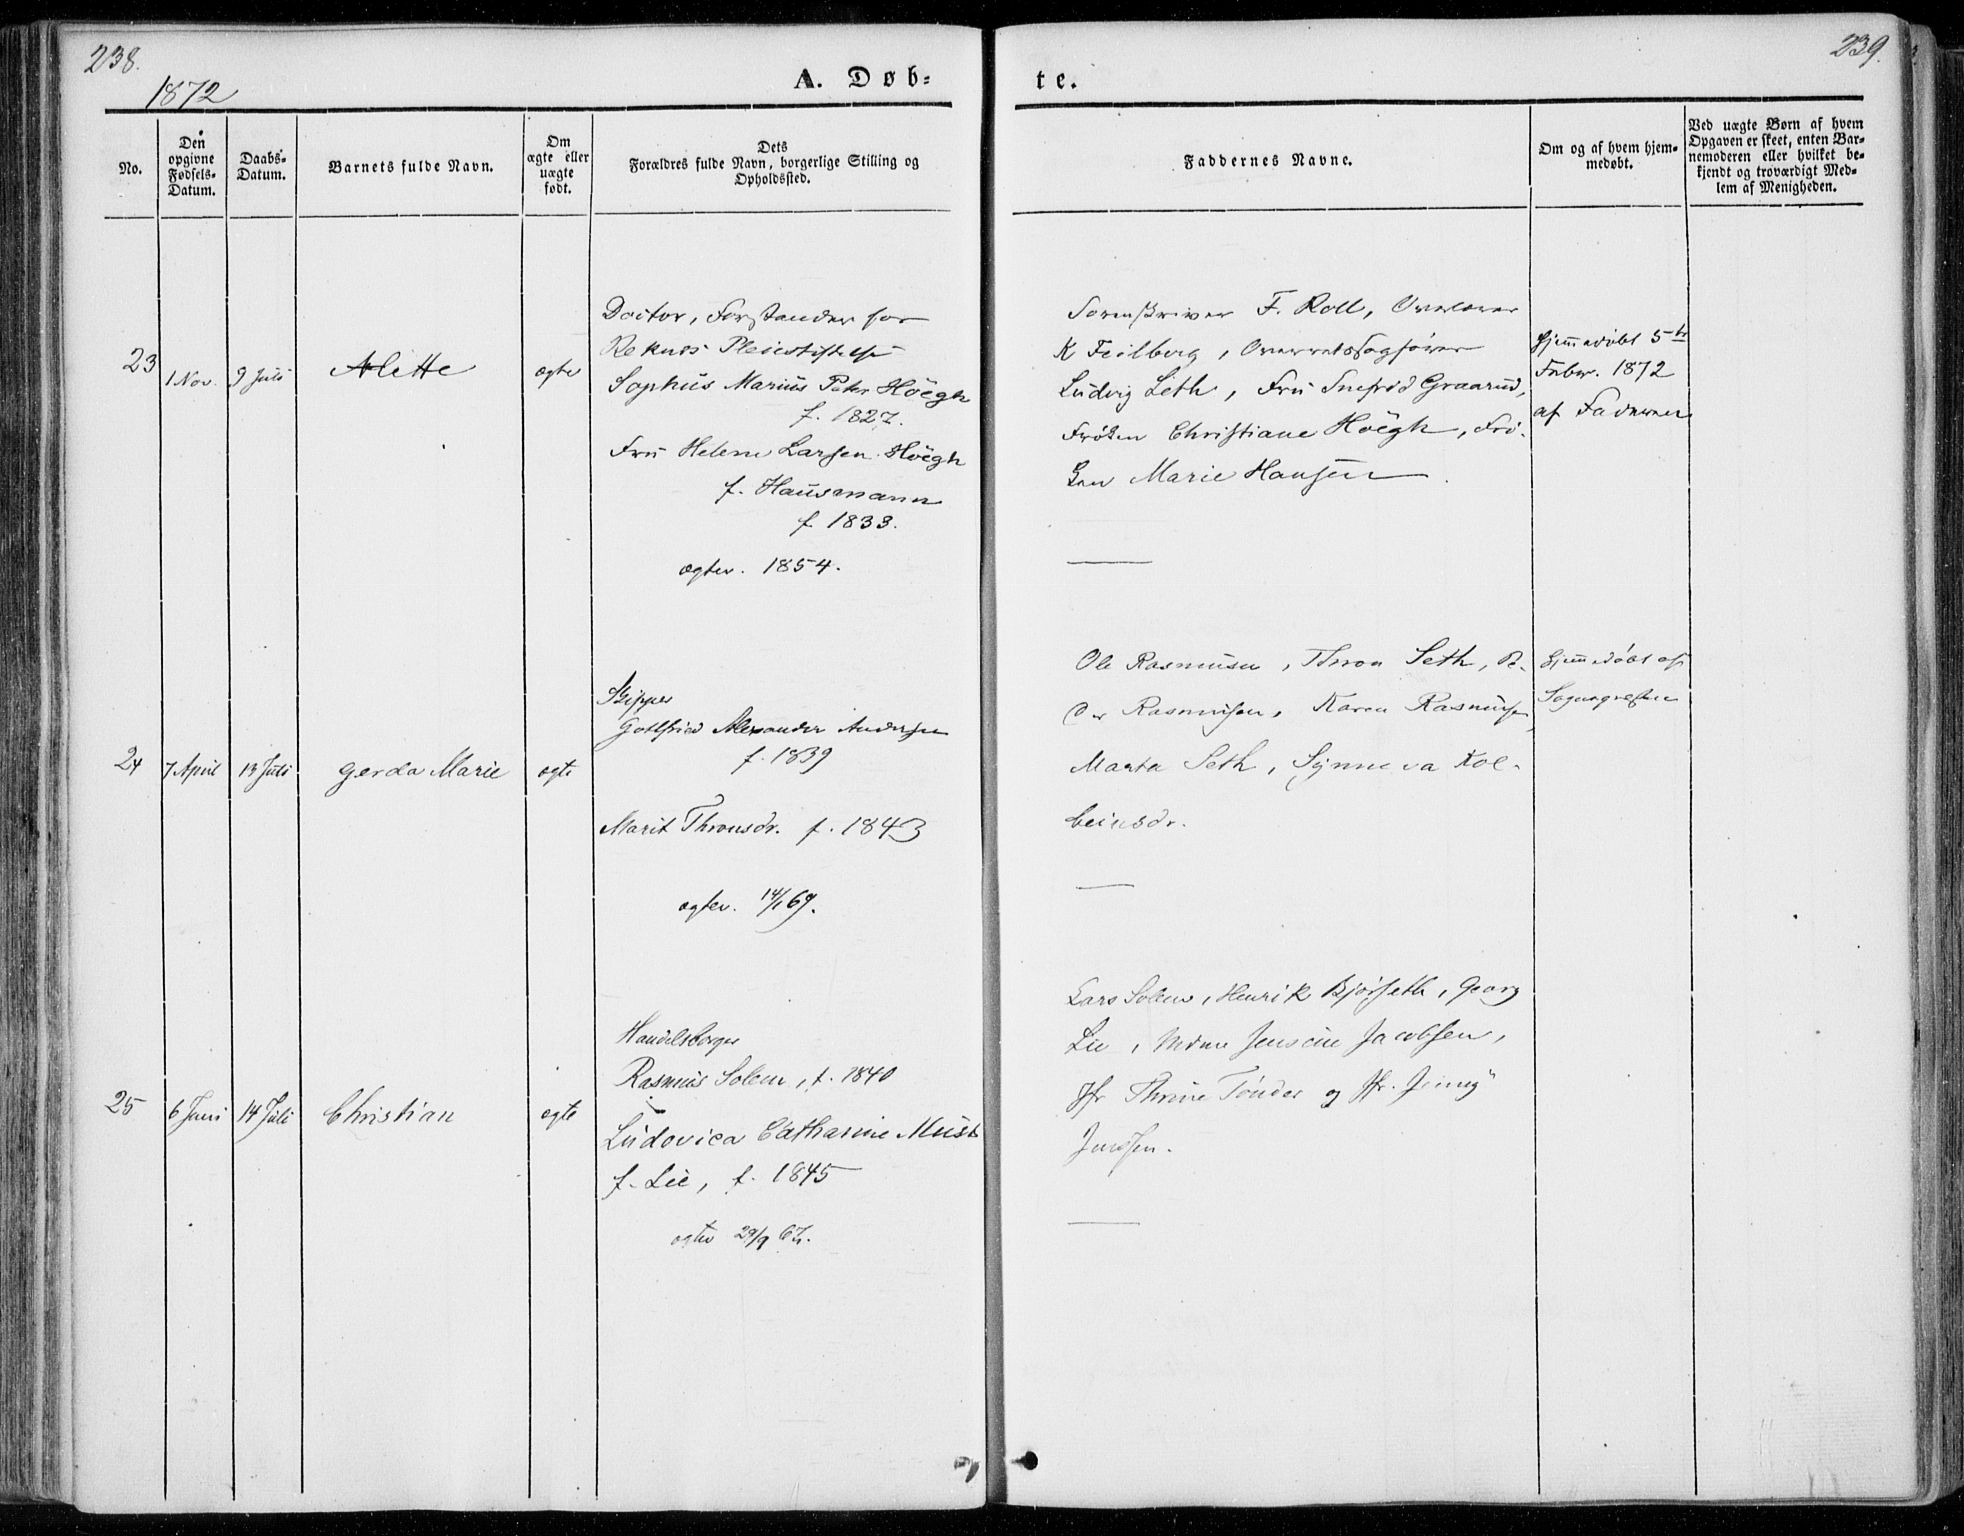 238.
1872
A. Døb-
No.
Den opgivne Fødsels-Datum.
Daabs-Datum.
Barnets fulde Navn.
Om ægte eller uægte født.
Dets
Forældres fulde Navn, borgerlige Stilling og
Opholdssted.
23
1 Nov.
9 Juli
Alette
ægte
Doctor, Forstander for
Reknes Pleiestiftelse
Sophus Marius Peter Höegh
f. 1827.
Fru Helene Larsen Höegh
f. Hausmann
f 1833.
ægtev. 1854.
24
7 April
13 Juli
Gerda Marie
ægte
Skipper
Gottfried Alexander Andersen
f. 1839
Marit Thronsdr. f. 1843
ægtev. 14/1 69.
25
6 Juni
14 Juli
Christian
ægte
Handelsborger
Rasmus Solem, f. 1840
Ludovica Catharine Must
f. Lie, f. 1845
ægtev 29/9 67.
239.
te.
Faddernes Navne.
Om og af hvem hjem-
medøbt.
Ved uægte Børn af hvem
Opgaven er skeet, enten Bar-
nemoderen eller hvilket be-
kjendt og troværdigt Med-
lem af Menigheden.
Sorenskriver F. Roll, Overlærer
K Feilberg, Overretssagfører
Ludvig Leth, Fru Snefrid Graarud,
Frøken Christiane Höegh, Frø-
ken Marie Hansen.
Hjemmedøbt 5te
Febr. 1872
af Faderen
Ole Rasmusen, Thron Seth, P-
der Rasmusen, Karen Rasmusen,
Marta Seth, Synneva Kol-
beinsdr.
Hjemmedøbt af
Sognepresten
Lars Solem, Henrik Bjørseth, Georg
Lie, Mdme Jensine Jacobsen,
Jfr Thrine Tönder og Jfr. Jenny
Jenssen.